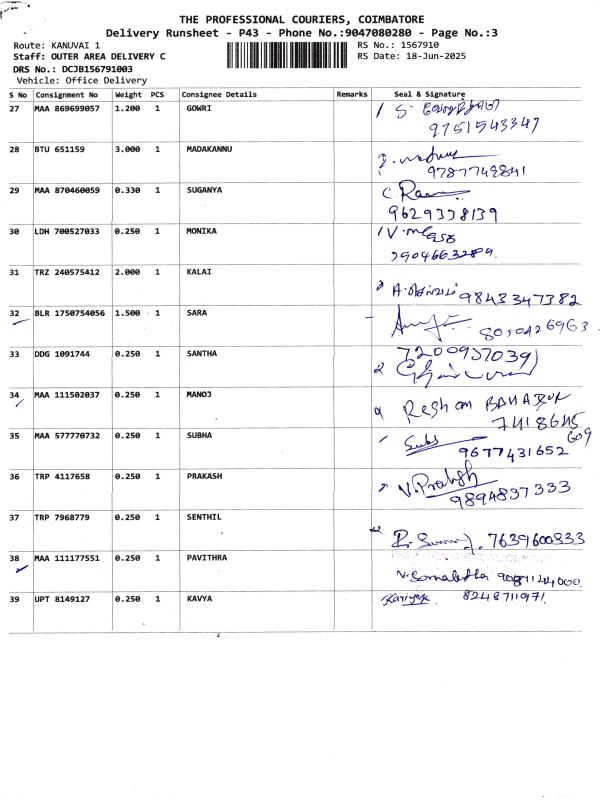 THE PROFESSIONAL COURIERS, COIMBATORE
Delivery Runsheet - P43 - Phone No.:9047080280 - Page No.:3
Route: KANUVAI 1 RS No.: 1567910
Staff: OUTER AREA DELIVERY C RS Date: 18-Jun-2025
DRS No.: DCJB156791003
Vehicle: Office Delivery
S No Consignment No Weight PCS Consignee Details Remarks Seal & Signature
27 MAA 869699057 1.200 1 GOWRI
9751543347
28 BTU 651159 3.000 1 MADAKANNU
9787749841
29 MAA 870460059 0.330 1 SUGANYA
9629338139
30 LDH 700527033 0.250 1 MONIKA
31 TRZ 240575412 2.000 1 KALAI
9843347382
32 BLR 1750754056 1.500 1 SARA
8050426963
33 DDG 1091744 0.250 1 SANTHA
7200937039
34 MAA 111502037 0.250 1 MANOJ Resham BAHADUR
7418645
609
35 MAA 577770732 0.250 1 SUBHA Subs
9677431652
36 TRP 4117658 0.250 1 PRAKASH V. Prakash
9894837333
37 TRP 7968779 0.250 1 SENTHIL
7639600833
38 MAA 111177551 0.250 1 PAVITHRA
39 UPT 8149127 0.250 1 KAVYA 8248711971